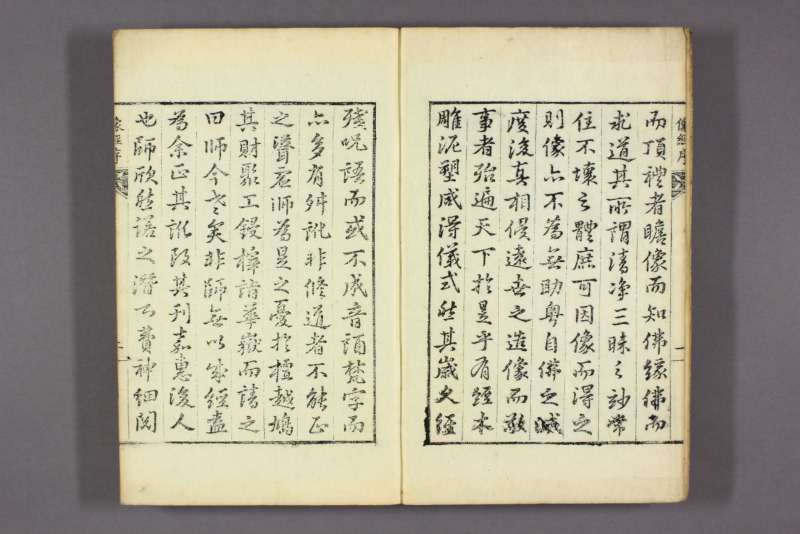 而頂禮者瞻像而知佛緣佛而
求道其所謂清淨三昧之妙常
住不壞之體庶可因像而得之
則像亦不為無助粵自佛之滅
度後真相償遠世之造像而敬
事者殆遍天下於是乎有經本
雕泥塑咸得儀式然其歲久經
殘呪語而或不成音韻梵字而
亦多有舛訛非修道者不能正
之賢
師為是之憂於檀越鳩
其財聚工鋟梓諸華嶽而請之
曰師今老矣非師無以成經盍
為余正其訛改其刊嘉惠後人
也師欣然諾之潛不費神細閱
像經序
二
像經序